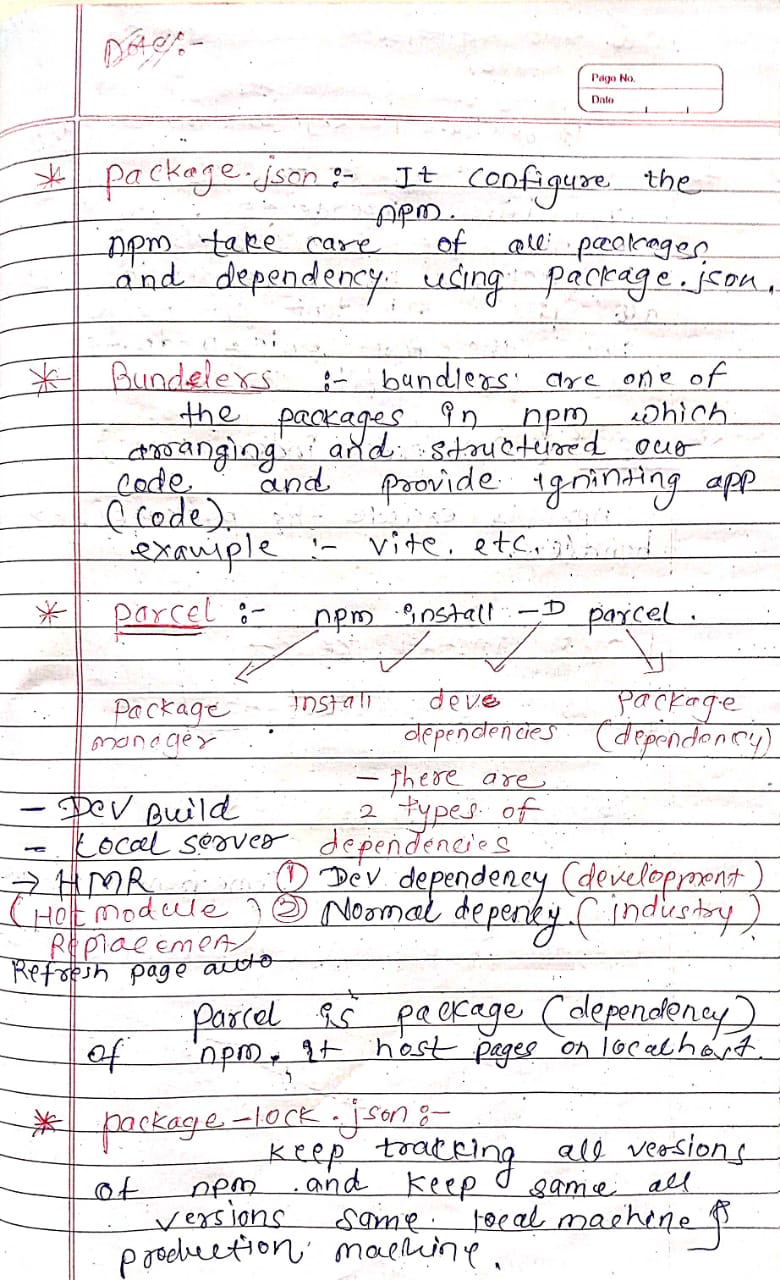 Date:-
Page No.
Date
* package.json :- It configure the
npm.
npm take care of all packages
and dependency using package.json.
* Bundelers :- bundlers are one of
the packages in npm which
arranging and structured our
code and provide igninting app
(code).
example :- vite. etc.
* parcel :- npm install -D parcel.
package install deve package
manager dependencies (dependancy)
- there are
- Dev Build 2 types of
- Local server dependencies
→ HMR ① Dev dependency (development)
(Hot module ② Normal depenky. (industry)
Replacement)
Refresh page auto
parcel is package (dependency)
of npm. It host pages on localhost.
* package-lock.json :-
keep tracking all versions
of npm and keep same all
versions same local machine &
production machine.